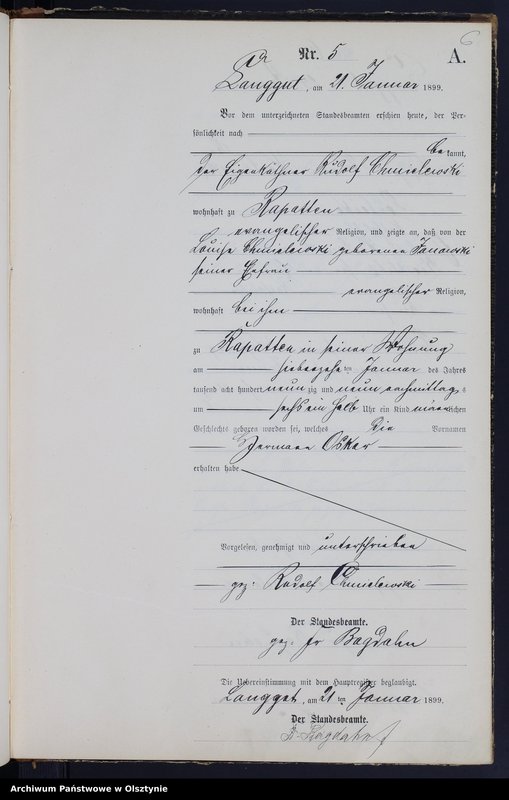 6
Nr. 5
A.
Langgut, am 21. Januar 1899.
Vor dem unterzeichneten Standesbeamten erschien heute, der Per-
sönlichkeit nach
be kannt,
der Eigenkäthner Rudolf Chmielewski
wohnhaft zu Rapatten
evangelischer Religion, und zeigte an, daß von der
Louise Chmielewski geborenen Janowski
seiner Ehefrau
evangelischer Religion,
wohnhaft bei ihm
zu Rapatten in seiner Wohnung
am siebzehn ten Januar des Jahres
tausend acht hundert neun zig und neun nachmittag s
um sechs ein halb Uhr ein Kind männ lichen
Geschlechts geboren worden sei, welches die Vornamen
Hermann Oskar
erhalten habe
Vorgelesen, genehmigt und unterschrieben
gez: Rudolf Chmielewski
Der Standesbeamte.
gez: Bagdahn
Die Uebereinstimmung mit dem Hauptregister beglaubigt.
Langgut, am 21 ten Januar 1899.
Der Standesbeamte.
Bagdahn
Archiwum Państwowe w Olsztynie